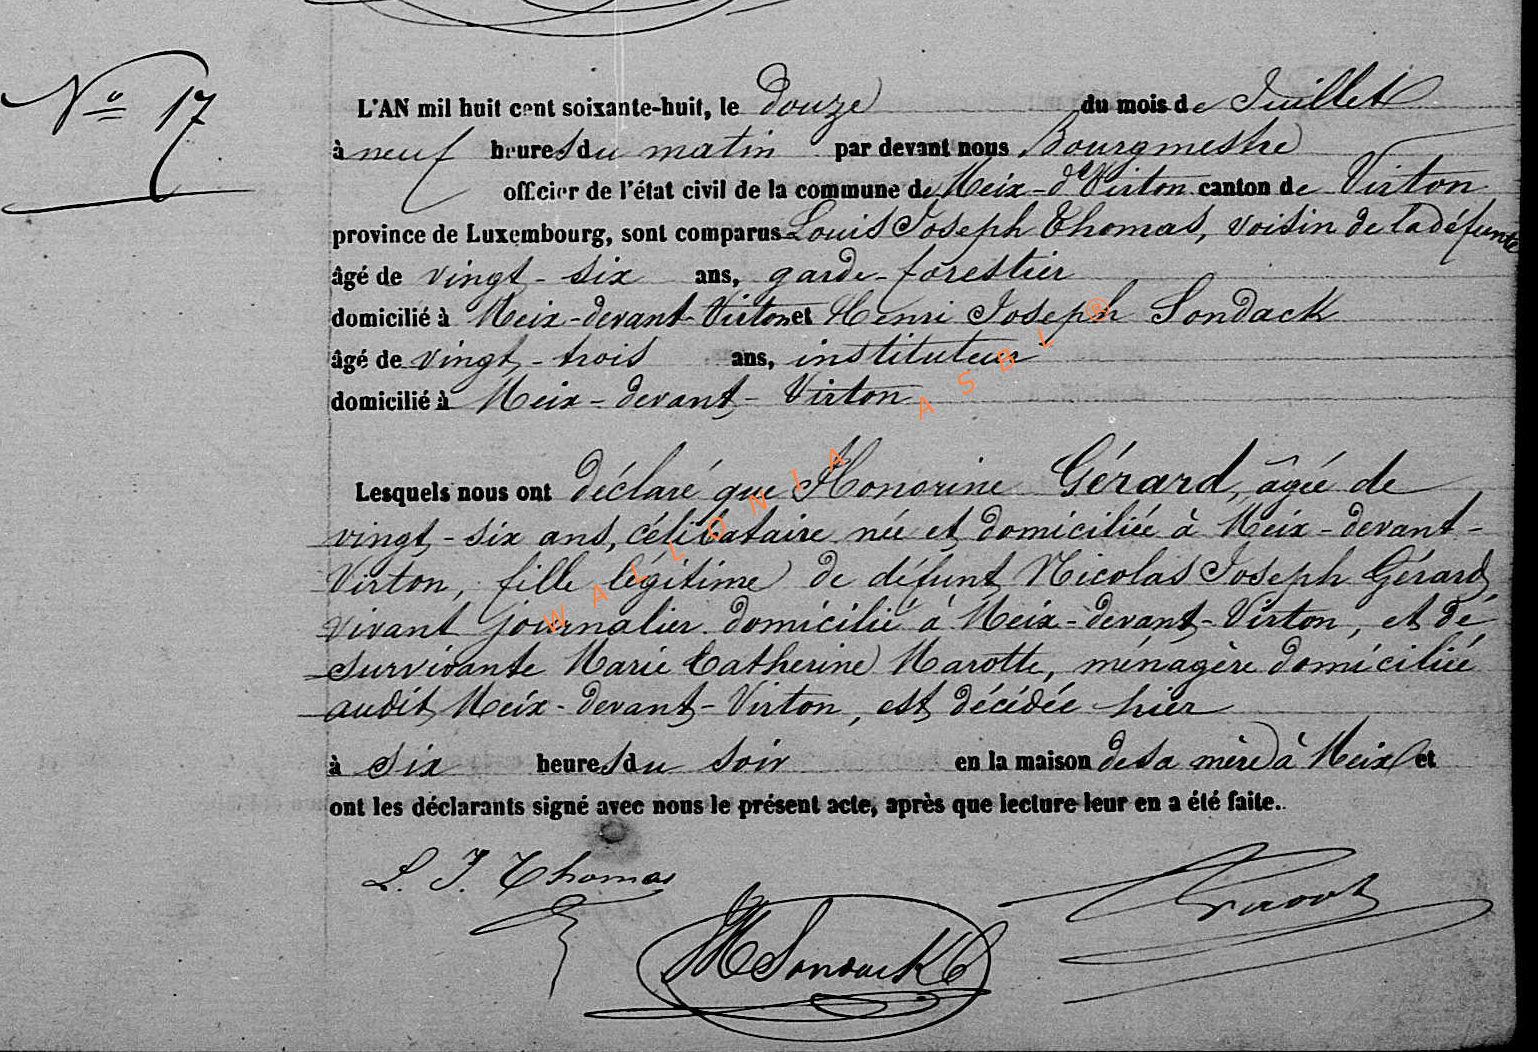 No 17
L'AN mil huit cent soixante-huit, le douze du mois de Juillet
à neuf heures du matin par devant nous Bourgmestre
officier de l'état civil de la commune de Meix-dt Virton canton de Virton
province de Luxembourg, sont comparus Louis Joseph Thomas, voisin de la défunte
âgé de vingt-six ans, garde-forestier
domicilié à Meix-devant-Virton et Henri Joseph Sondack
âgé de vingt-trois ans, instituteur
domicilié à Meix-devant-Virton
Lesquels nous ont déclaré que Honorine Gérard, âgée de
vingt-six ans, célibataire née et domiciliée à Meix-devant-
Virton, fille légitime de défunt Nicolas Joseph Gérard
vivant journalier domicilié à Meix-devant-Virton, et de
survivante Marie Catherine Marotte, ménagère domiciliée
audit Meix-devant-Virton, est décédée hier
à six heures du soir en la maison de sa mère à Meix et
ont les déclarants signé avec nous le présent acte, après que lecture leur en a été faite.
L. J. Thomas
HSondack
WALLONIA ASBL ®